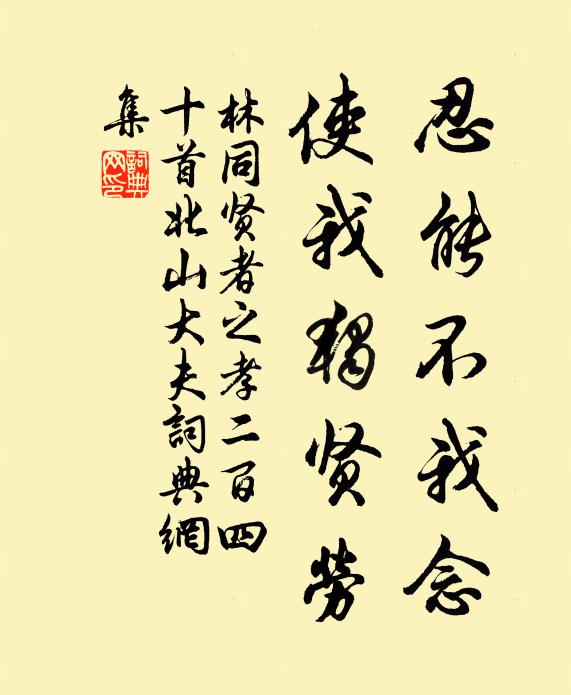 忍能不我念
使我独贤劳
林同贤者之孝二百四
十首北山大夫詞典網
集
詞典
网印